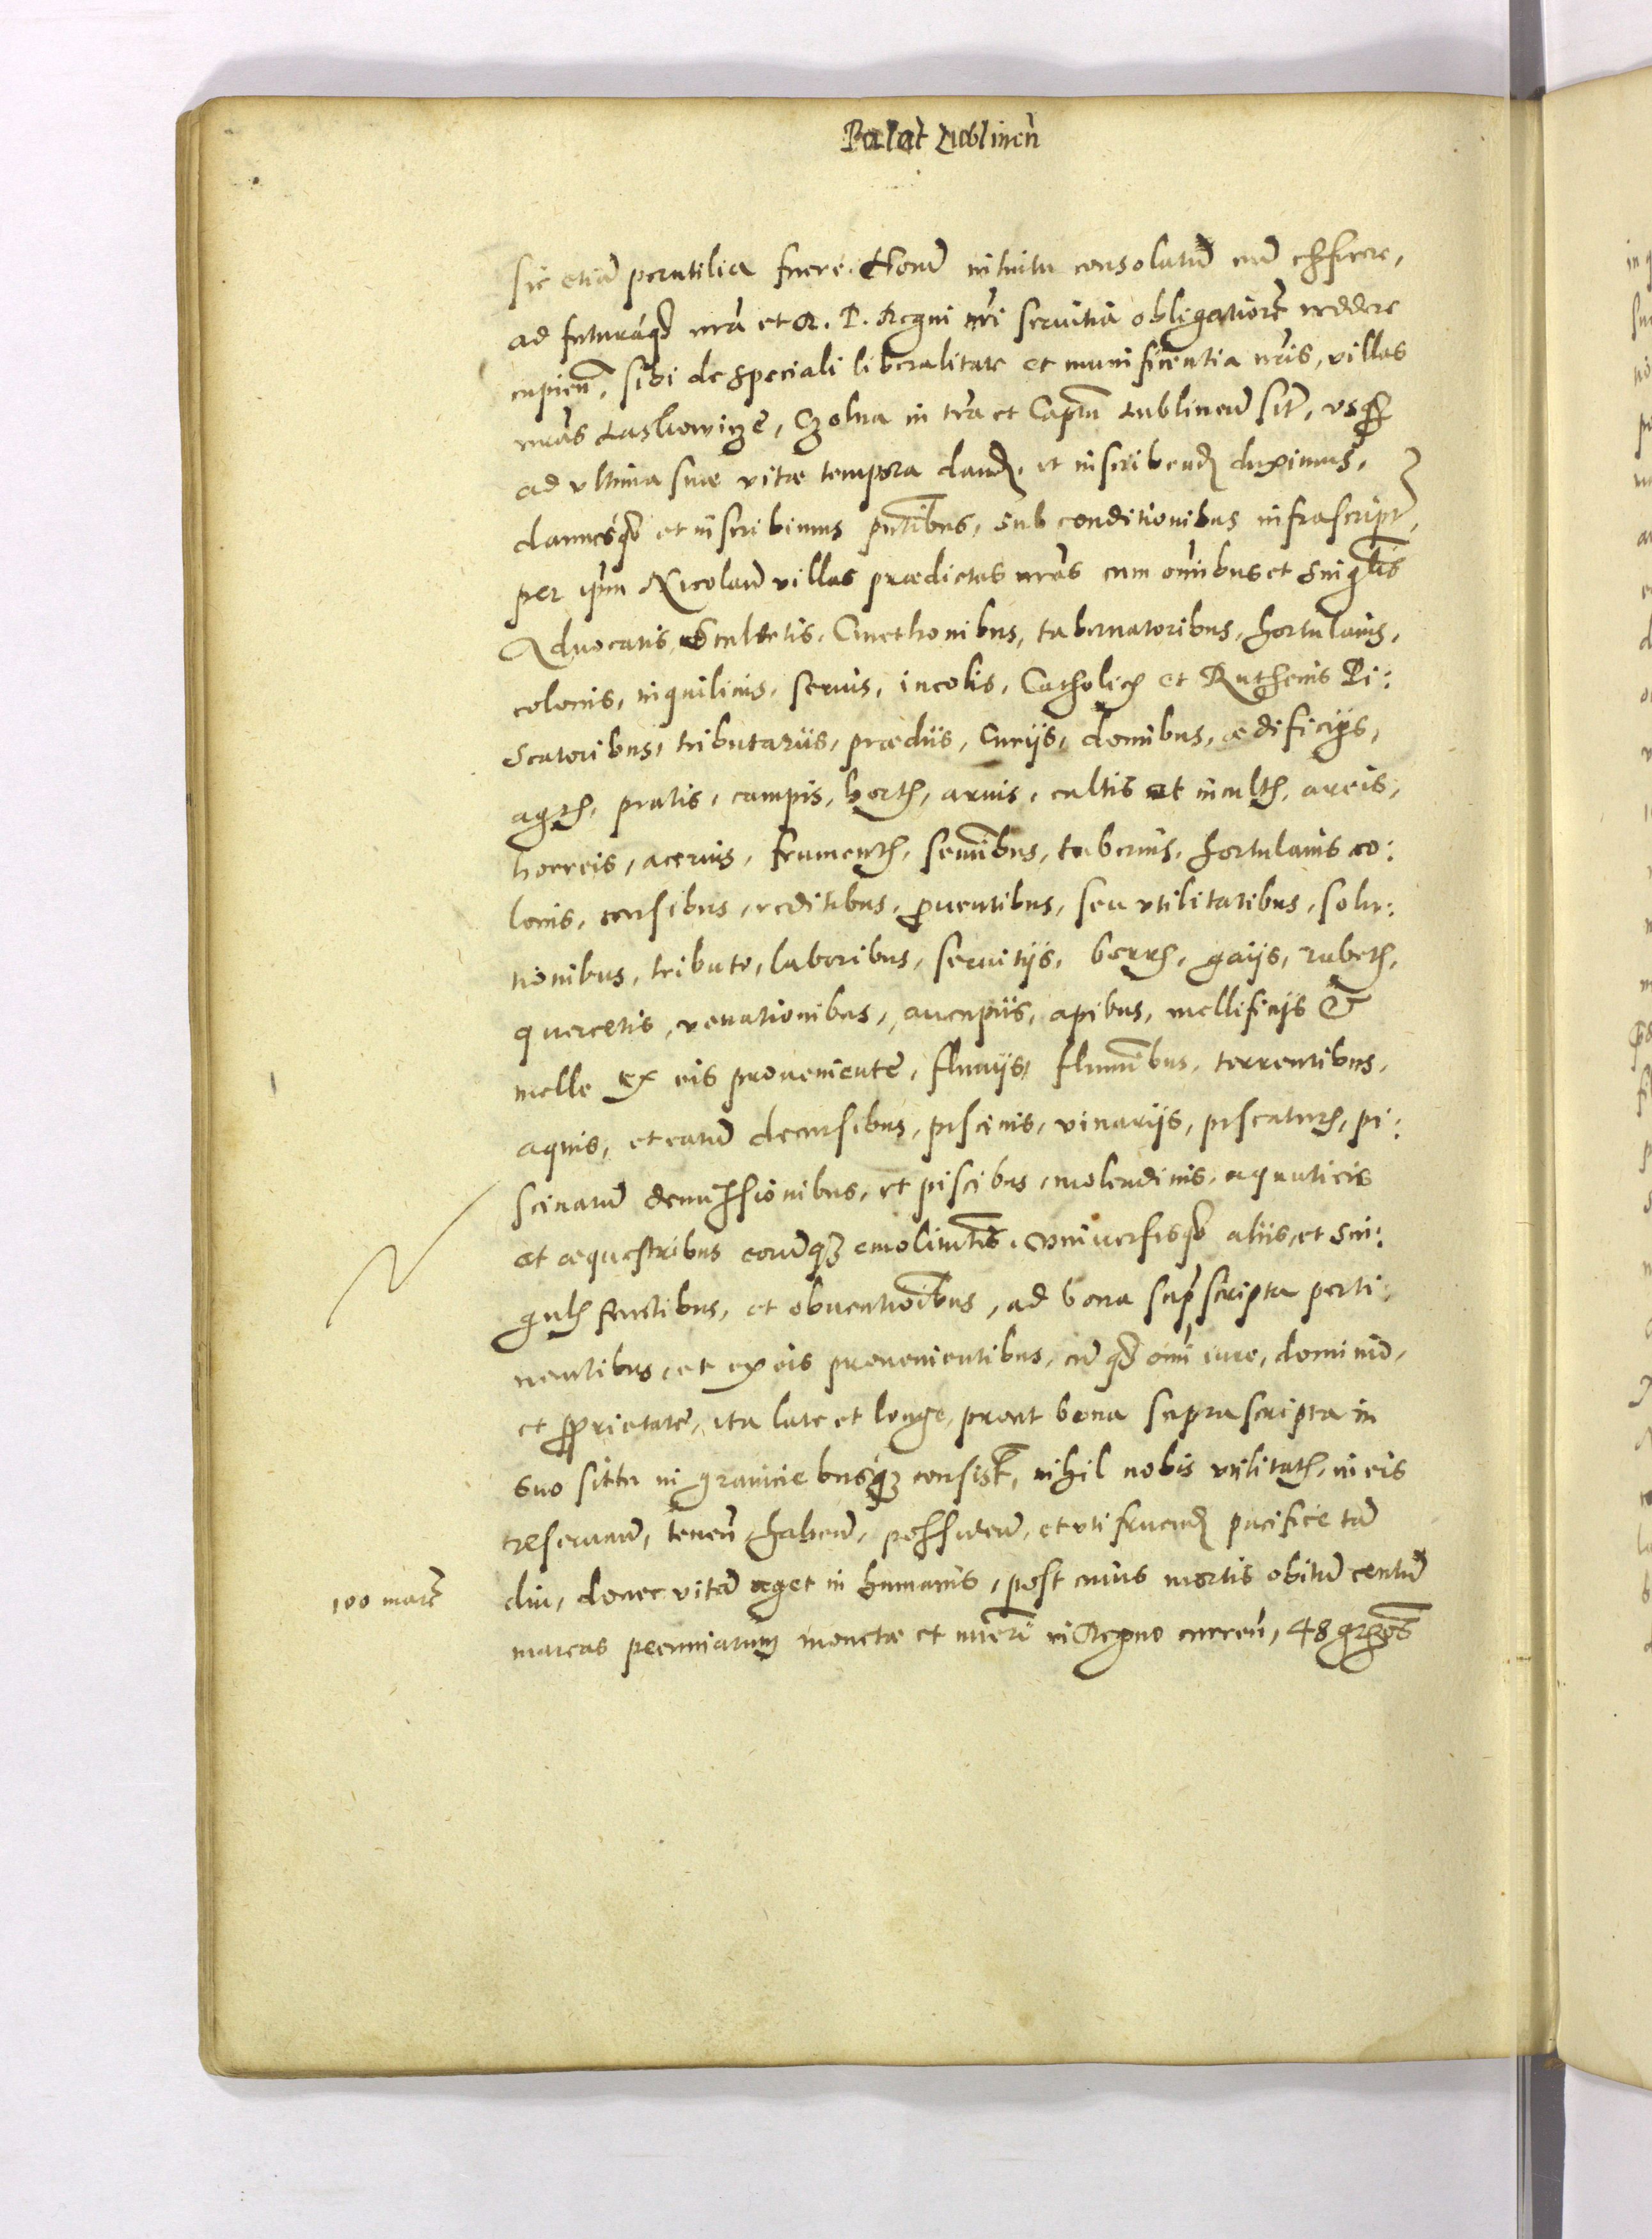 Palat Lublineñ
sic etiã perutilia fuere. Horũ intuitu consolatũ eũ efficere,
ad futuraq₃ nr̃a et R. P. Regni nr̃i seruitia obligatiorẽ reddere
cupieñ, sibi de speciali liberalitate et munificentia nr̃is, villas
nr̃as Laskowicze, Czolna in tr̃a et Captũ Lublineñ sit̃, usq₃
ad ultima suæ vitæ tempora dand̃, et inscribend̃ duximus,
damusq₃ et inscribimus pñtibus, sub conditionibus infrascript̃,
per ip̃m Nicolaũ villas prædictas nr̃as cum om̃ibus et singlis
Aduocatis, Scultetis, Cmethonibus, tabernatoribus, hortulanis,
colonis, inquilinis, seruis, incolis, Catholicis et Ruthenis Pi:
scatoribus, tributariis, prædiis, Curijs, domibus, ædificijs,
agris, pratis, campis, hortis, aruis, cultis et incultis, areis,
horreis, aceruis, frumentis, semĩbus, tabernis, hortulanis co:
lonis, censibus, reditibus, ꝓuentibus, seu utilitatibus, solu:
tionibus, tributo, laboribus, seruitijs, borris, gaijs, rubetis,
quercetis, venationibus, aucupiis, apibus, mellificijs &
melle ex eis proueniente, fluuijs, flumĩbus, torrentibus,
aquis, et earũ decursibus, piscinis, vinarijs, piscaturis, pi:
scinarũ demissionibus, et piscibus, molendinis, aquaticis
et æquestribus eorũq₃ emolimẽtis. Vniuersisq₃ aliis, et sin:
gulis fructibus, et obuentionĩbus, ad bona sup̃scripta perti:
nentibus, et ex eis prouenientibus, cũ q₃ om̃i iure, dominio,
et ꝓprietate, ita late et longe, prout bona suprascripta in
suo situ in graniciebusq₃ consist̃, nihil nobis utilitatis, in eis
reseruanũ, teneñ habenũ, possidenũ, et utifruend̃ pacifice tã
diu, donec vitã aget in humanis, post cuius mortis obitũ centũ
100 marc̃
marcas pecuniarum monetæ et nũeri in Regno curreñ, 48 gr̃os